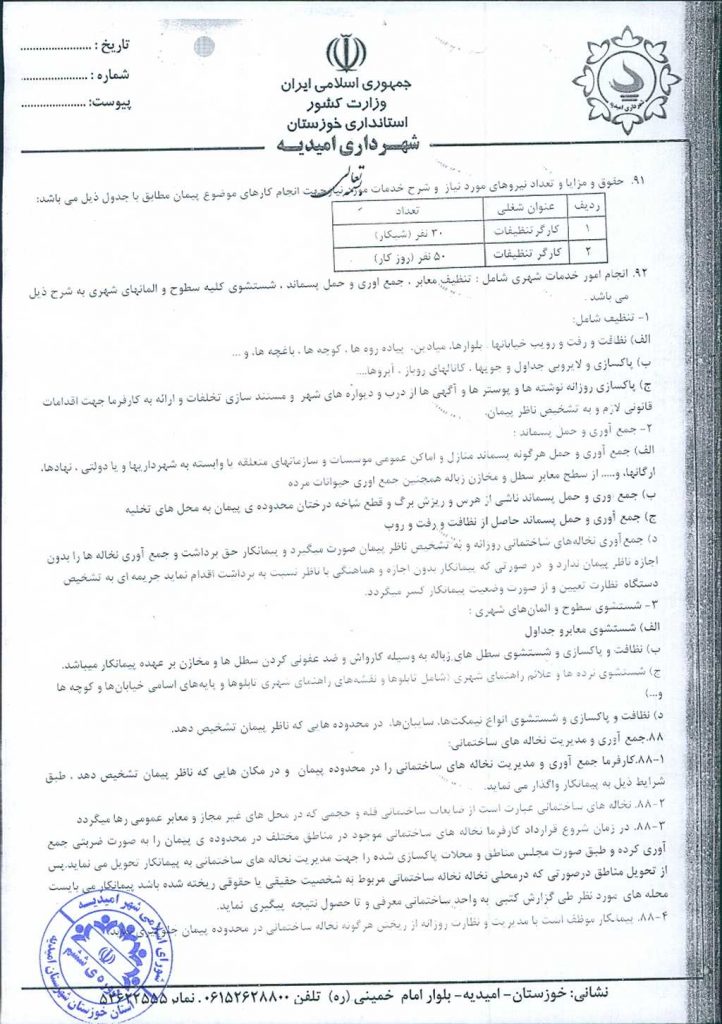 تاریخ : ......................
شماره : ......................
پیوست: ......................
جمهوری اسلامی ایران
وزارت کشور
استانداری خوزستان
شهرداری امیدیه
شهرداری امیدیه
۹۱. حقوق و مزایا و تعداد نیروهای مورد نیاز و شرح خدمات مورد نیاز جهت انجام کارهای موضوع پیمان مطابق با جدول ذیل می باشد:
ردیف عنوان شغلی تعداد
۱ کارگر تنظیفات ۳۰ نفر (شبکار)
۲ کارگر تنظیفات ۵۰ نفر (روز کار)
۹۲. انجام امور خدمات شهری شامل : تنظیف معابر ، جمع اوری و حمل پسماند ، شستشوی کلیه سطوح و المانهای شهری به شرح ذیل
می باشد .
۱- تنظیف شامل:
الف) نظافت و رفت و رویب خیابانها، بلوارها، میادین، پیاده روه ها ، کوچه ها ، باغچه ها، و ...
ب) پاکسازی و لایروبی جداول و جویها ، کانالهای روباز ، آبروها....
ج) پاکسازی روزانه نوشته ها و پوستر ها و آگهی ها از درب و دیواره های شهر و مستند سازی تخلفات و ارائه به کارفرما جهت اقدامات
قانونی لازم و به تشخیص ناظر پیمان.
۲- جمع آوری و حمل پسماند :
الف) جمع آوری و حمل هرگونه پسماند منازل و اماکن عمومی موسسات و سازمانهای متعلقه یا وابسته به شهرداریها و یا دولتی ، نهادها،
ارگانها، و..... از سطح معابر سطل و مخازن زباله همچنین جمع اوری حیوانات مرده
ب) جمع اوری و حمل پسماند ناشی از هرس و ریزش برگ و قطع شاخه درختان محدوده ی پیمان به محل های تخلیه
ج) جمع آوری و حمل پسماند حاصل از نظافت و رفت و روب
د) جمع‌آوری نخاله‌های ساختمانی روزانه و به تشخیص ناظر پیمان صورت میگیرد و پیمانکار حق برداشت و جمع آوری نخاله ها را بدون
اجازه ناظر پیمان ندارد و در صورتی که پیمانکار بدون اجازه و هماهنگی با ناظر نسبت به برداشت اقدام نماید جریمه ای به تشخیص
دستگاه نظارت تعیین و از صورت وضعیت پیمانکار کسر میگردد.
۳- شستشوی سطوح و المان‌های شهری :
الف) شستشوی معابرو جداول
ب) نظافت و پاکسازی و شستشوی سطل های زباله به وسیله کارواش و ضد عفونی کردن سطل ها و مخازن بر عهده پیمانکار میباشد.
ج) شستشوی نرده ها و علائم راهنمای شهری (شامل تابلوها و نقشه‌های راهنمای شهری تابلوها و پایه‌های اسامی خیابان‌ها و کوچه ها
و...)
د) نظافت و پاکسازی و شستشوی انواع نیمکت‌ها، سایبان‌ها، در محدوده هایی که ناظر پیمان تشخیص دهد.
۸۸.جمع آوری و مدیریت نخاله های ساختمانی:
۸۸-۱.کارفرما جمع آوری و مدیریت نخاله های ساختمانی را در محدوده پیمان و در مکان هایی که ناظر پیمان تشخیص دهد ، طبق
شرایط ذیل به پیمانکار واگذار می نماید.
۸۸-۲. نخاله های ساختمانی عبارت است از ضایعات ساختمانی فله و حجمی که در محل های غیر مجاز و معابر عمومی رها میگردد
۸۸-۳. در زمان شروع قرارداد کارفرما نخاله های ساختمانی موجود در مناطق مختلف در محدوده ی پیمان را به صورت ضربتی جمع
آوری کرده و طبق صورت مجلس مناطق و محلات پاکسازی شده را جهت مدیریت نخاله های ساختمانی به پیمانکار تحویل می نماید.پس
از تحویل مناطق درصورتی که درمحلی نخاله نخاله ساختمانی مربوط به شخصیت حقیقی یا حقوقی ریخته شده باشد پیمانکار می بایست
محله های مورد نظر طی گزارش کتبی به واحد ساختمانی معرفی و تا حصول نتیجه پیگیری نماید.
۸۸-۴. پیمانکار موظف است با مدیریت و نظارت روزانه از ریختن هرگونه نخاله ساختمانی در محدوده پیمان
شورای اسلامی شهر امیدیه
دوره ی ششم
استان خوزستان شهرستان امیدیه
نشانی: خوزستان- امیدیه- بلوار امام خمینی (ره) تلفن ۰۶۱۵۲۶۲۸۸۰۰ نمابر ۵۲۶۲۲۵۵۵